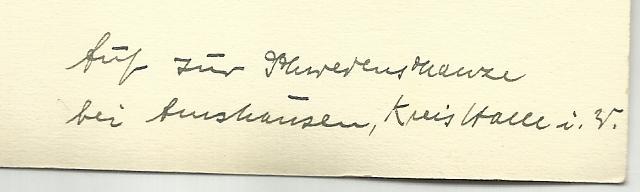 Auf zur Schwedenschanze
bei Amshausen, Kreis Halle i. W.